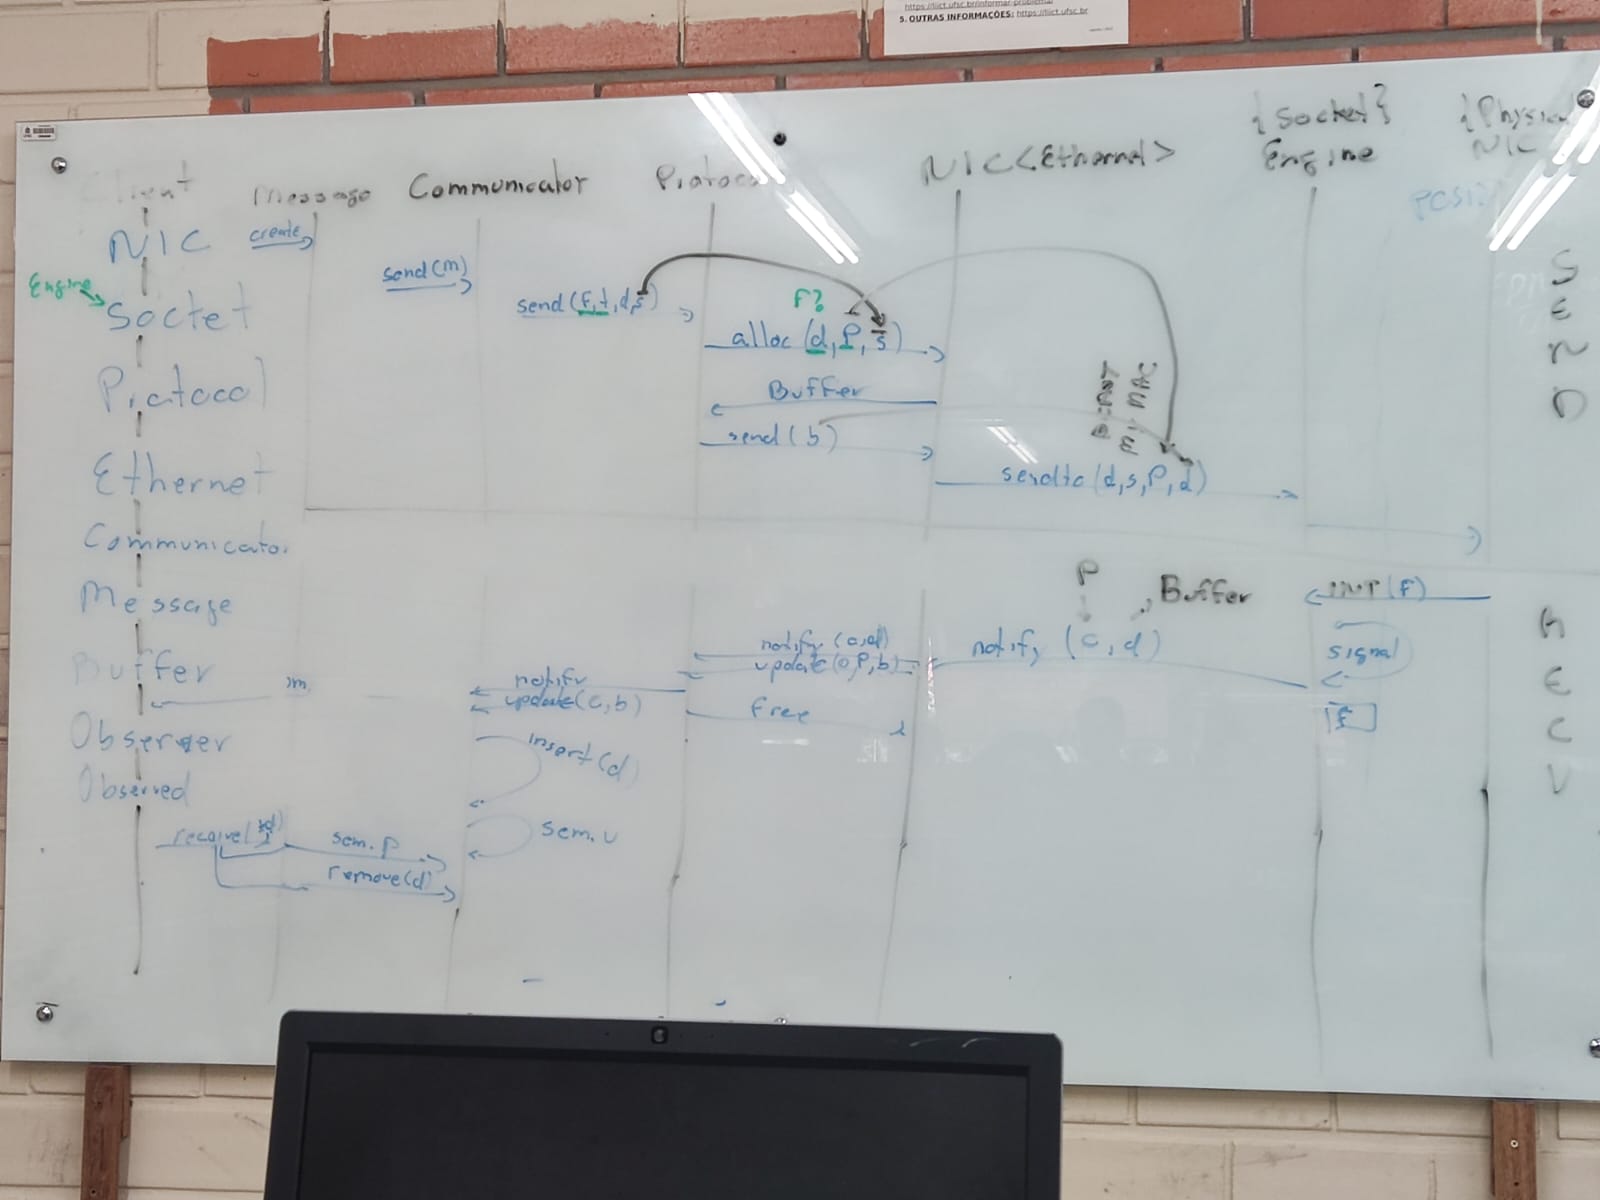 https://liict.ufsc.br/informar-problema/
5. OUTRAS INFORMAÇÕES: https://liict.ufsc.br
Client
Message
Communicator
Protoco
NIC<Ethernet>
{Socket}
Engine
{Physical
NIC
POSIX
NIC
Engine
Soctet
Protocol
Ethernet
Communicator
Message
Buffer
Observer
Observed
create
send(m)
send(f,t,d,s)
F?
alloc (d, P, s)
Buffer
send(b)
BCAST
MY MAC
sendto(d,s,P,d)
SEND
INT(F)
signal
F
P
Buffer
notify (c, d)
notify (c,d)
update(o,P,b)
notify
update(c,b)
free
m
insert(d)
sem.v
receive(
sem.p
remove(d)
RECV